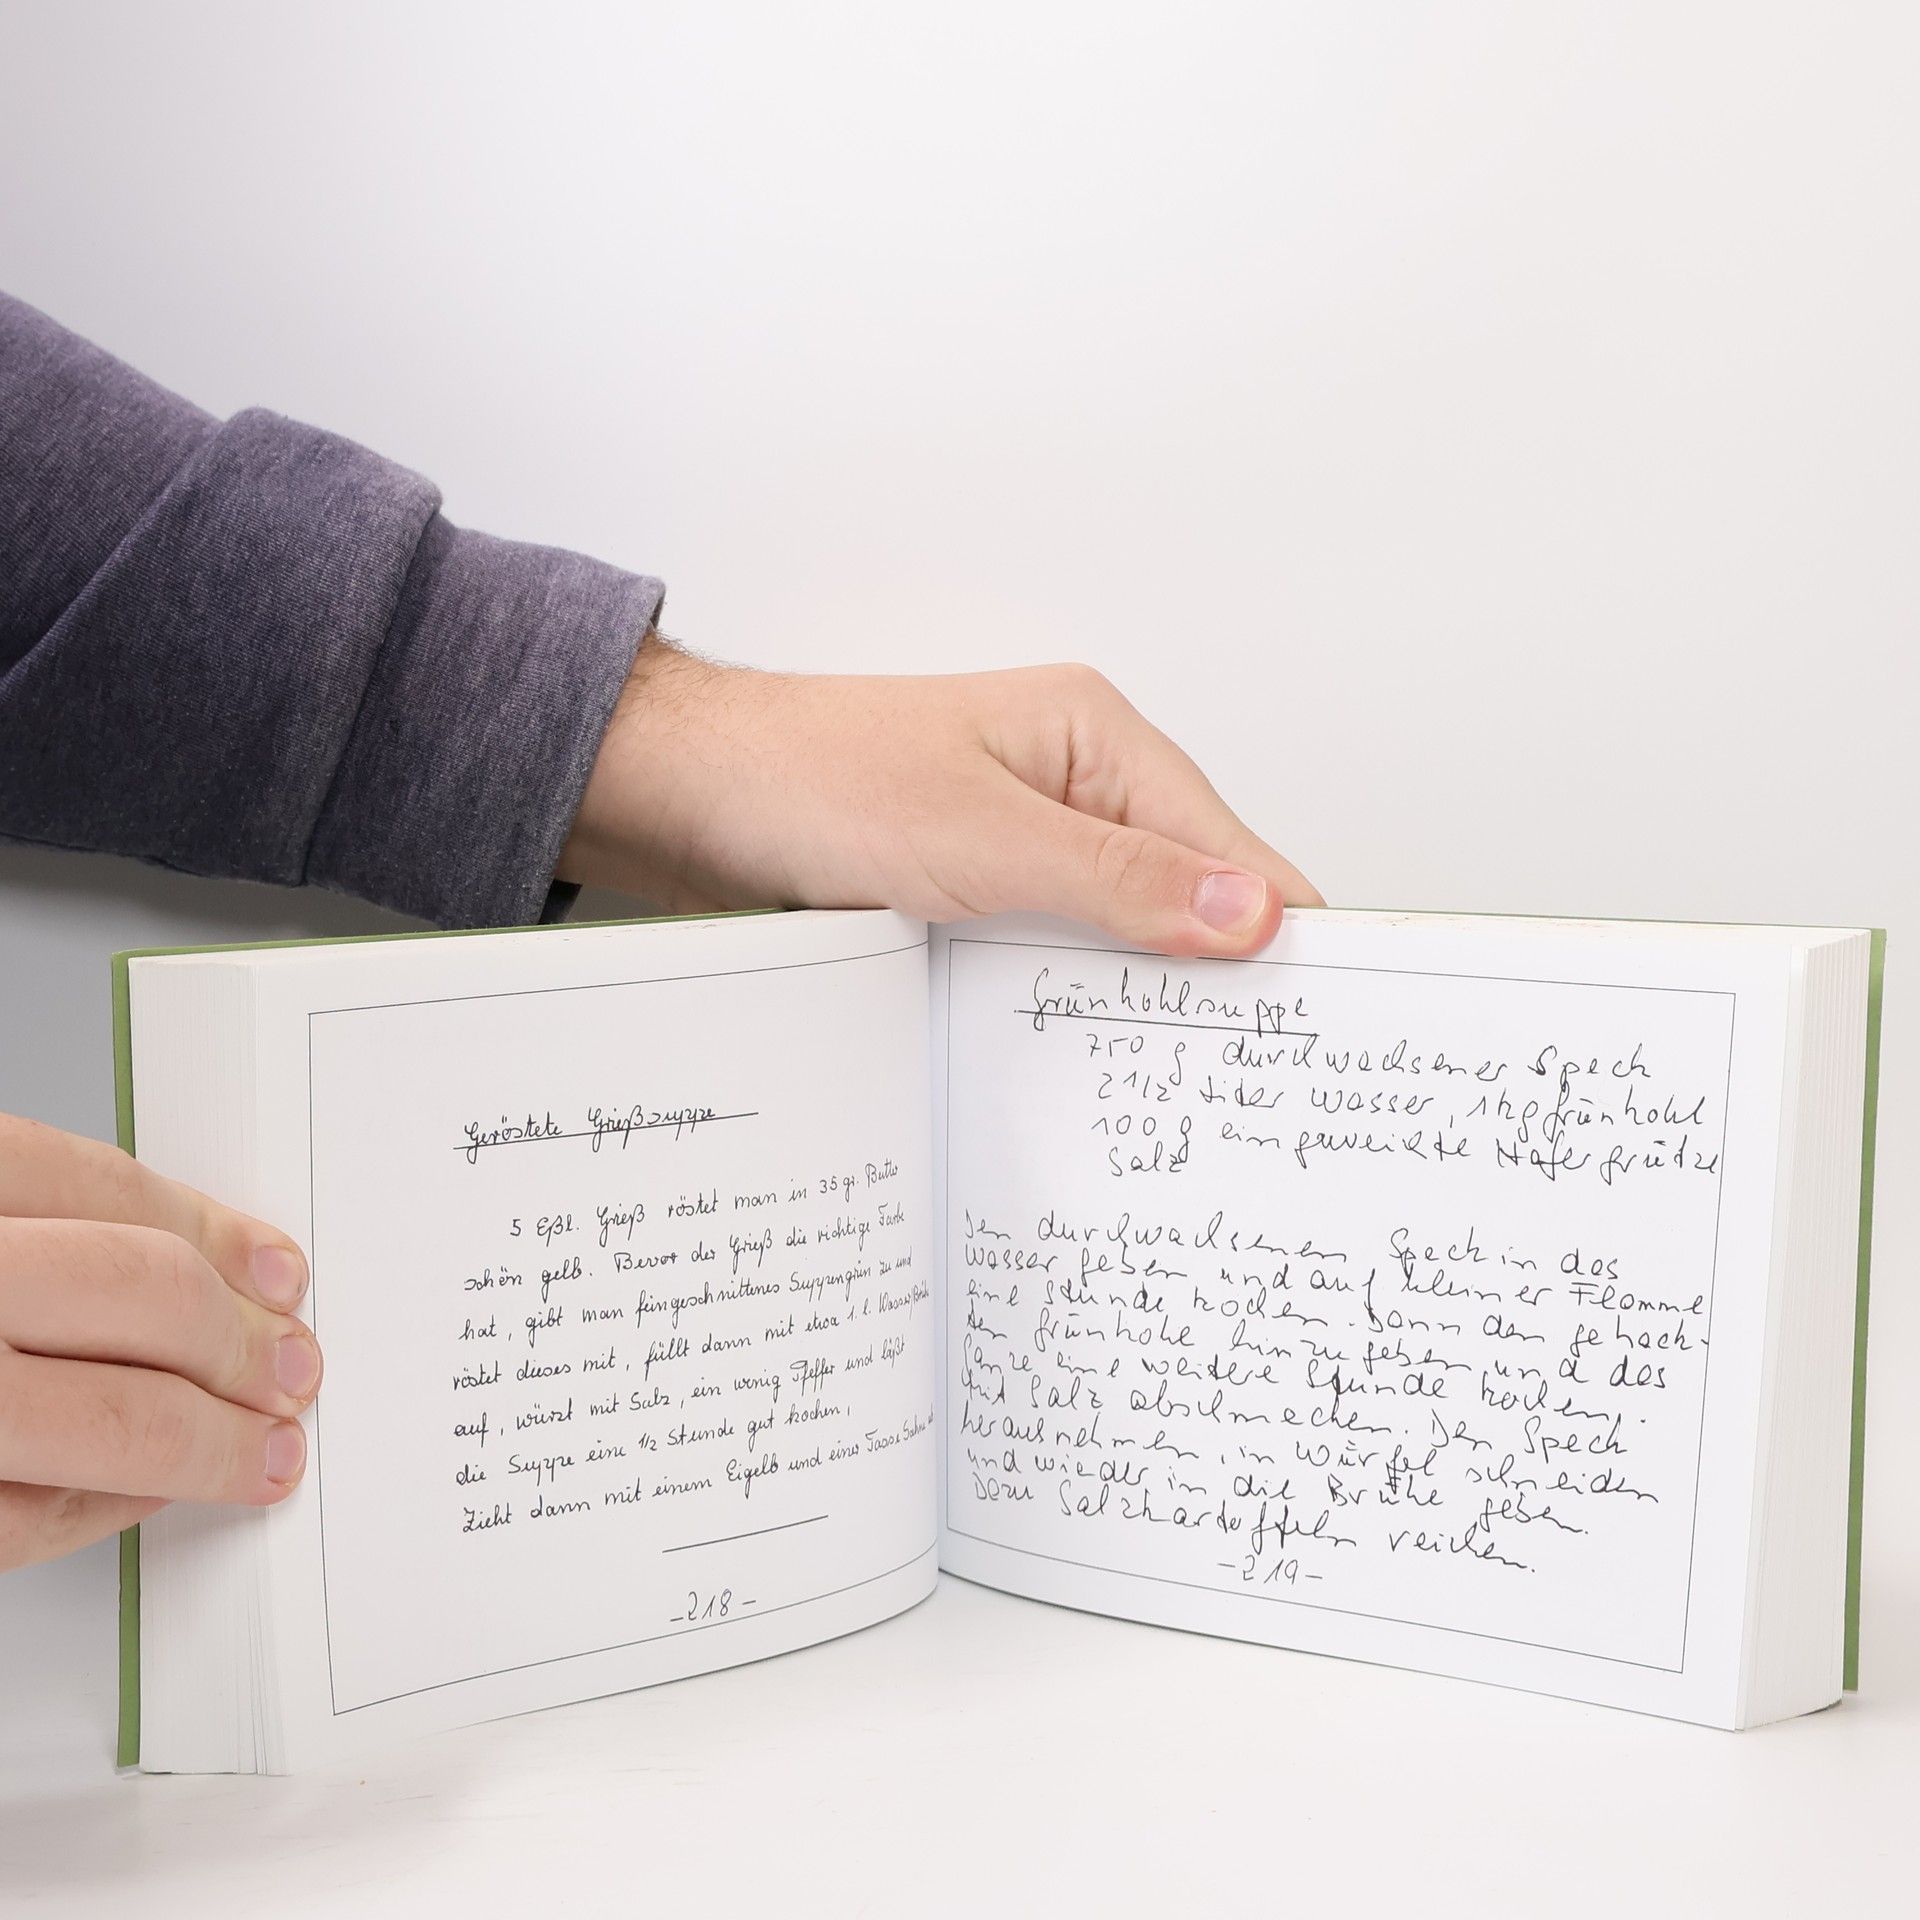 Geröstete Grießsuppe
5 Eßl. Grieß röstet man in 35 gr. Butter
schön gelb. Bevor der Grieß die richtige Farbe
hat, gibt man feingeschnittenes Suppengrün zu und
röstet dieses mit, füllt dann mit etwa 1. l. Wasser/Brüh
auf, würzt mit Salz, ein wenig Pfeffer und läßt
die Suppe eine 1/2 Stunde gut kochen,
Zieht dann mit einem Eigelb und einer Tasse Sahne ab
-218-
Grünkohlsuppe
750 g durchwachsener Speck
2 1/2 Liter Wasser, 1kg Grünkohl
100 g eingeweichte Hafergrütze
Salz
Den durchwachsenen Speck in das
Wasser geben und auf kleiner Flamme
eine Stunde kochen. Dann den gehack-
ten Grünkohl hinzugeben und das
Ganze eine weitere Stunde kochen.
Mit Salz abschmecken. Den Speck
herausnehmen, in Würfel schneiden
und wieder in die Brühe geben.
Dazu Salzkartoffeln reichen.
-219-